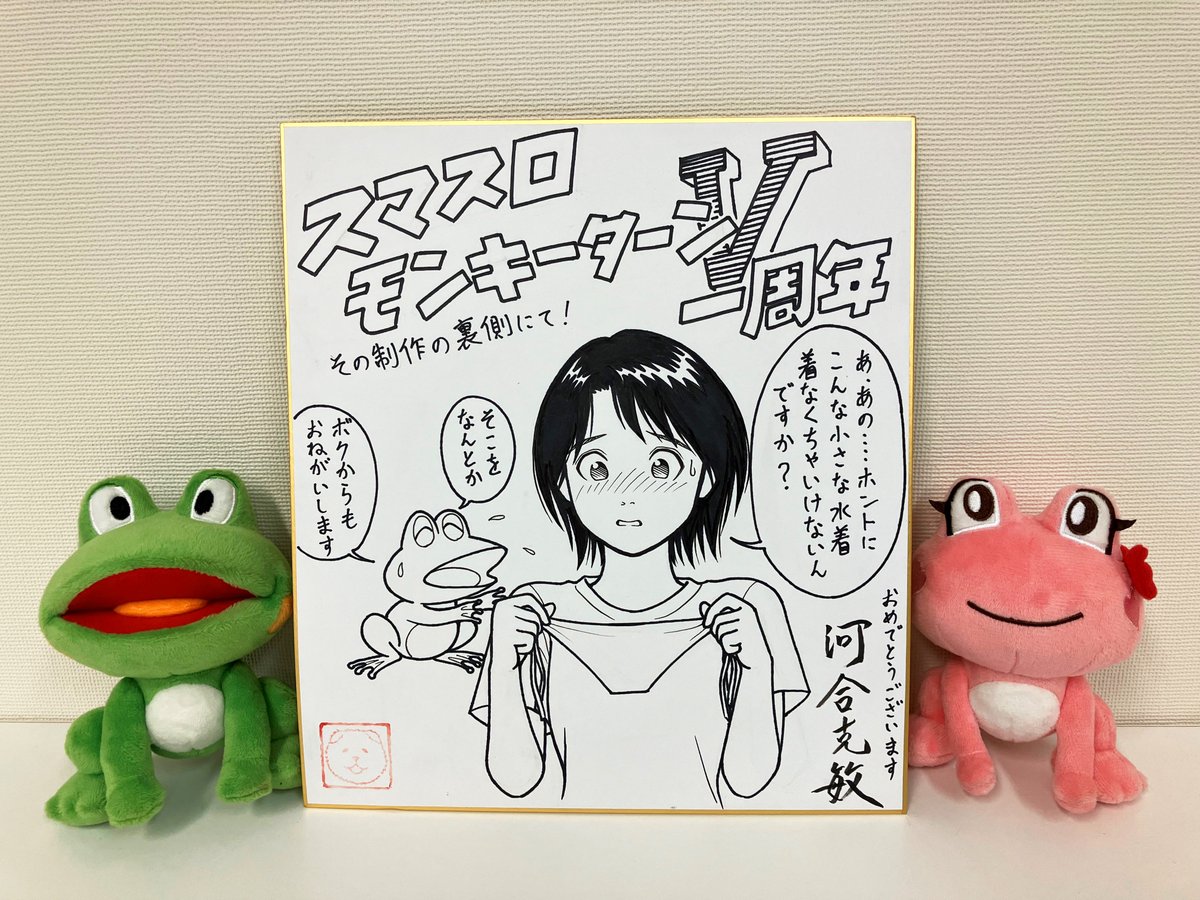 スマスロ
モンキーターンV
一周年
その制作の裏側にて!
あ・あの‥‥ホントに
こんな小さな水着
着なくちゃいけないん
ですか?
そこを
なんとか
ボクからも
おねがいします
おめでとうございます
河合克敏